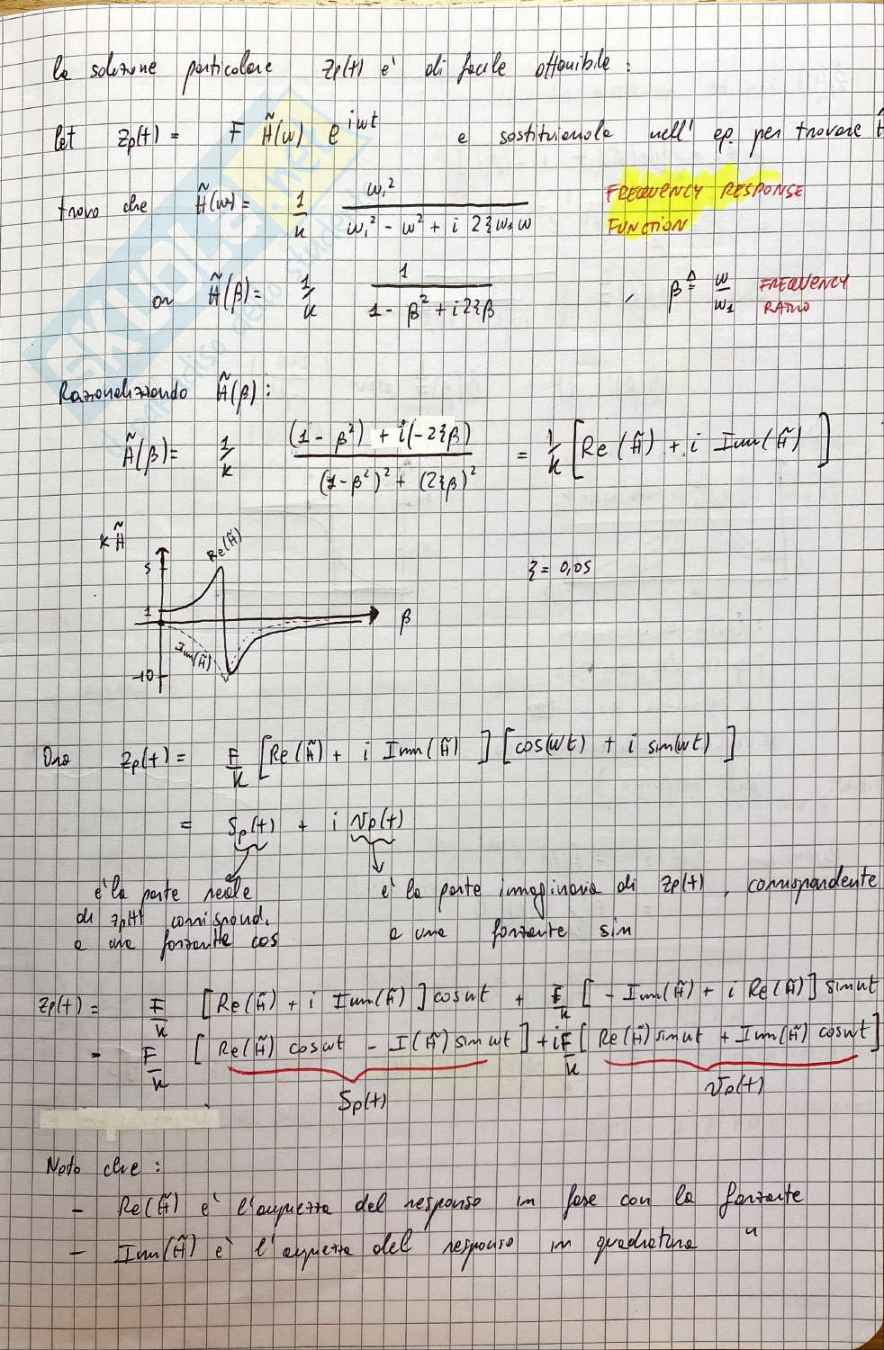 la soluzione particolare zp(t) e' di facile ottenibile :
let zp(t) = F H̃(ω) e^{iωt} e sostituendola nell' eq. per trovare H̃
trovo che H̃(ω) = 1/k ω₁²/(ω₁² - ω² + i 2ξω₁ω) FREQUENCY RESPONSE FUNCTION
or H̃(β) = 1/k 1/(1 - β² + i2ξβ) , β ≜ ω/ω₁ FREQUENCY RATIO
Razionalizzando H̃(β) :
H̃(β) = 1/k ((1 - β²) + i(-2ξβ))/((1-β²)² + (2ξβ)²) = 1/k [Re(H̃) + i Imm(H̃)]
k H̃
Re(H̃)
5
ξ = 0,05
1
β
Imm(H̃)
-10
Ora zp(t) = F/k [Re(H̃) + i Imm(H̃)] [cos(ωt) + i sim(ωt)]
= Sp(t) + i Vp(t)
e' la parte reale di zp(t) corrispond. a una forzante cos
e' la parte immaginaria di zp(t), corrispondente a una forzante sin
zp(t) = F/k [Re(H̃) + i Imm(H̃)] cosωt + F/k [- Imm(H̃) + i Re(H̃)] simωt
= F/k [Re(H̃) cosωt - I(H̃) simωt] + i F/k [Re(H̃) simωt + Imm(H̃) cosωt]
Sp(t) Vp(t)
Noto che :
- Re(H̃) e' l'ampiezza del responso in fase con la forzante
- Imm(H̃) e' l'ampiezza del responso in quadratura "
SKUOLA.net